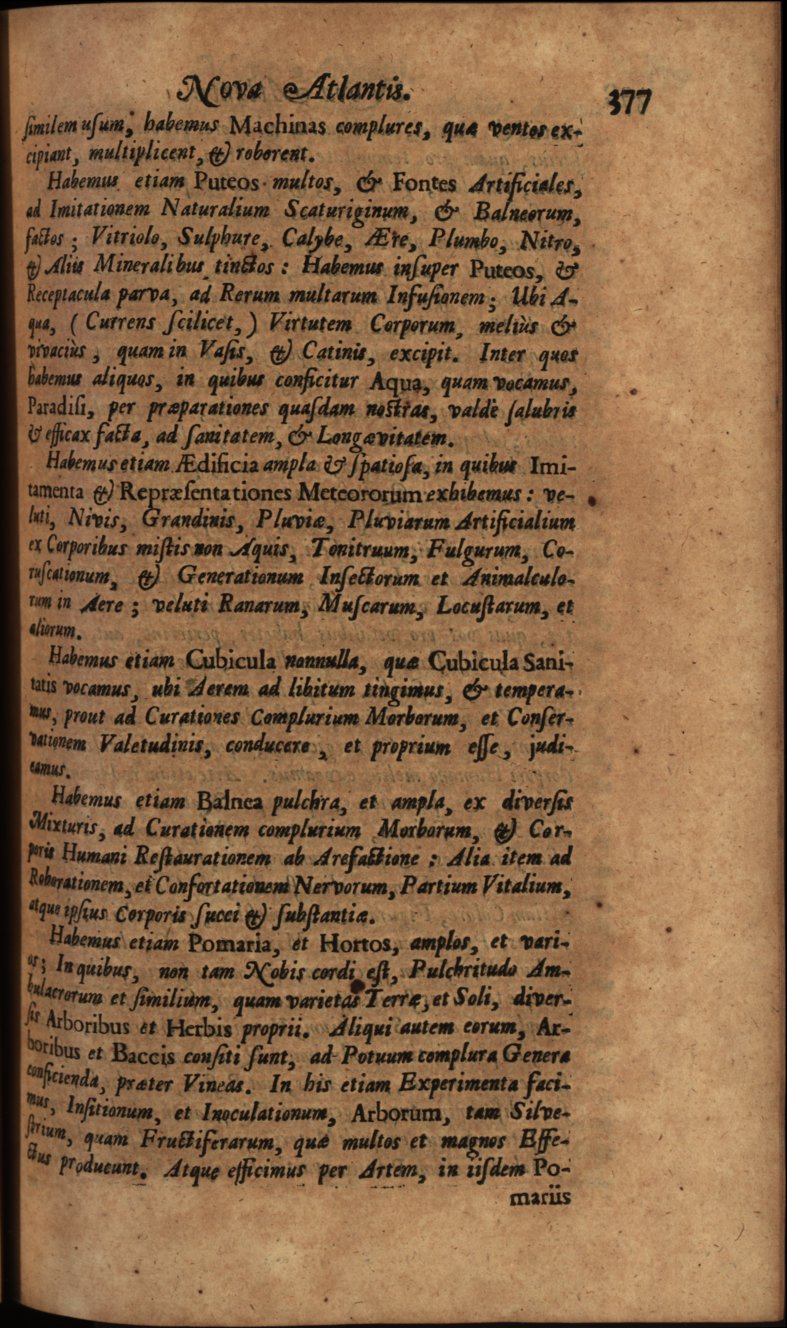 Nova Atlantis.
377
ſimilem uſum; habemus Machinas complures, quæ ventos ex-
cipiant, multiplicent, & roborent.
Habemus etiam Puteos multos, & Fontes Artificiales,
ad Imitationem Naturalium Scaturiginum, & Balneorum,
factos; Vitriolo, Sulphure, Calybe, Ære, Plumbo, Nitro,
& Aliis Mineralibus tinctos: Habemus inſuper Puteos, &
Receptacula parva, ad Rerum multarum Infuſionem; Ubi A-
qua, (Currens ſcilicet,) Virtutem Corporum, meliùs &
vivaciùs, quam in Vaſis, & Catinis, excipit. Inter quos
habemus aliquos, in quibus conficitur Aqua, quam vocamus,
Paradiſi, per præparationes quaſdam noſtras, valdè ſalubris
& efficax facta, ad ſanitatem, & Longævitatem.
Habemus etiam Ædificia ampla & ſpatioſa, in quibus Imi-
tamenta & Repræſentationes Meteororum exhibemus: ve-
luti, Nivis, Grandinis, Pluviæ, Pluviarum Artificialium
ex Corporibus miſtis non Aquis, Tonitruum, Fulgurum, Co-
ruſcationum, & Generationum Inſectorum et Animalculo-
rum in Aere; veluti Ranarum, Muſcarum, Locuſtarum, et
aliorum.
Habemus etiam Cubicula nonnulla, quæ Cubicula Sani-
tatis vocamus, ubi Aerem ad libitum tingimus, & tempera-
mus, prout ad Curationes Complurium Morborum, et Conſer-
vationem Valetudinis, conducere, et proprium eſſe, judi-
camus.
Habemus etiam Balnea pulchra, et ampla, ex diverſis
Mixturis, ad Curationem complurium Morborum, & Cor-
poris Humani Reſtaurationem ab Arefactione: Alia item ad
Roborationem, et Confortationem Nervorum, Partium Vitalium,
atque ipſius Corporis ſucci & ſubſtantiæ.
Habemus etiam Pomaria, et Hortos, amplos, et vari-
os; In quibus, non tam Nobis cordi eſt, Pulchritudo Am-
bulacrorum et ſimilium, quam varietas Terræ, et Soli, diver-
ſis Arboribus et Herbis proprii. Aliqui autem eorum, Ar-
boribus et Baccis conſiti ſunt, ad Potuum complura Genera
conficienda, præter Vineas. In his etiam Experimenta faci-
mus, Inſitionum, et Inoculationum, Arborum, tam Silve-
ſtrium, quam Fructiferarum, quæ multos et magnos Effe-
ctus producunt. Atque efficimus per Artem, in iiſdem Po-
mariis